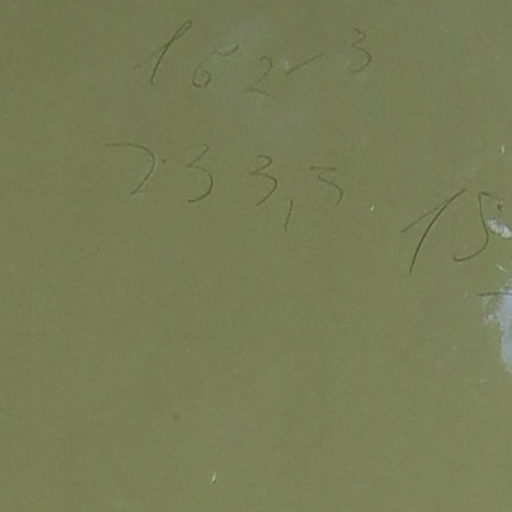 162-3
233,5
15